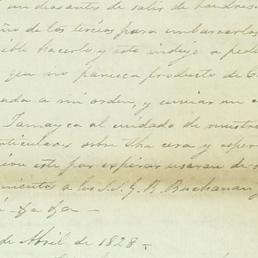 un diasantes de salir de Londres
ño de los tercios para embarcarlos
ible hacerlo y esto indujo a pedi
que no paresca producto de C
ada a mi orden, y enviar un
Jamayca al cuidado de nuestro
articulares sobre dha cera y esper
ción este por expirar usaran de
miento a los S.S. J. B. Buchanan y
de Abril de 1828.-